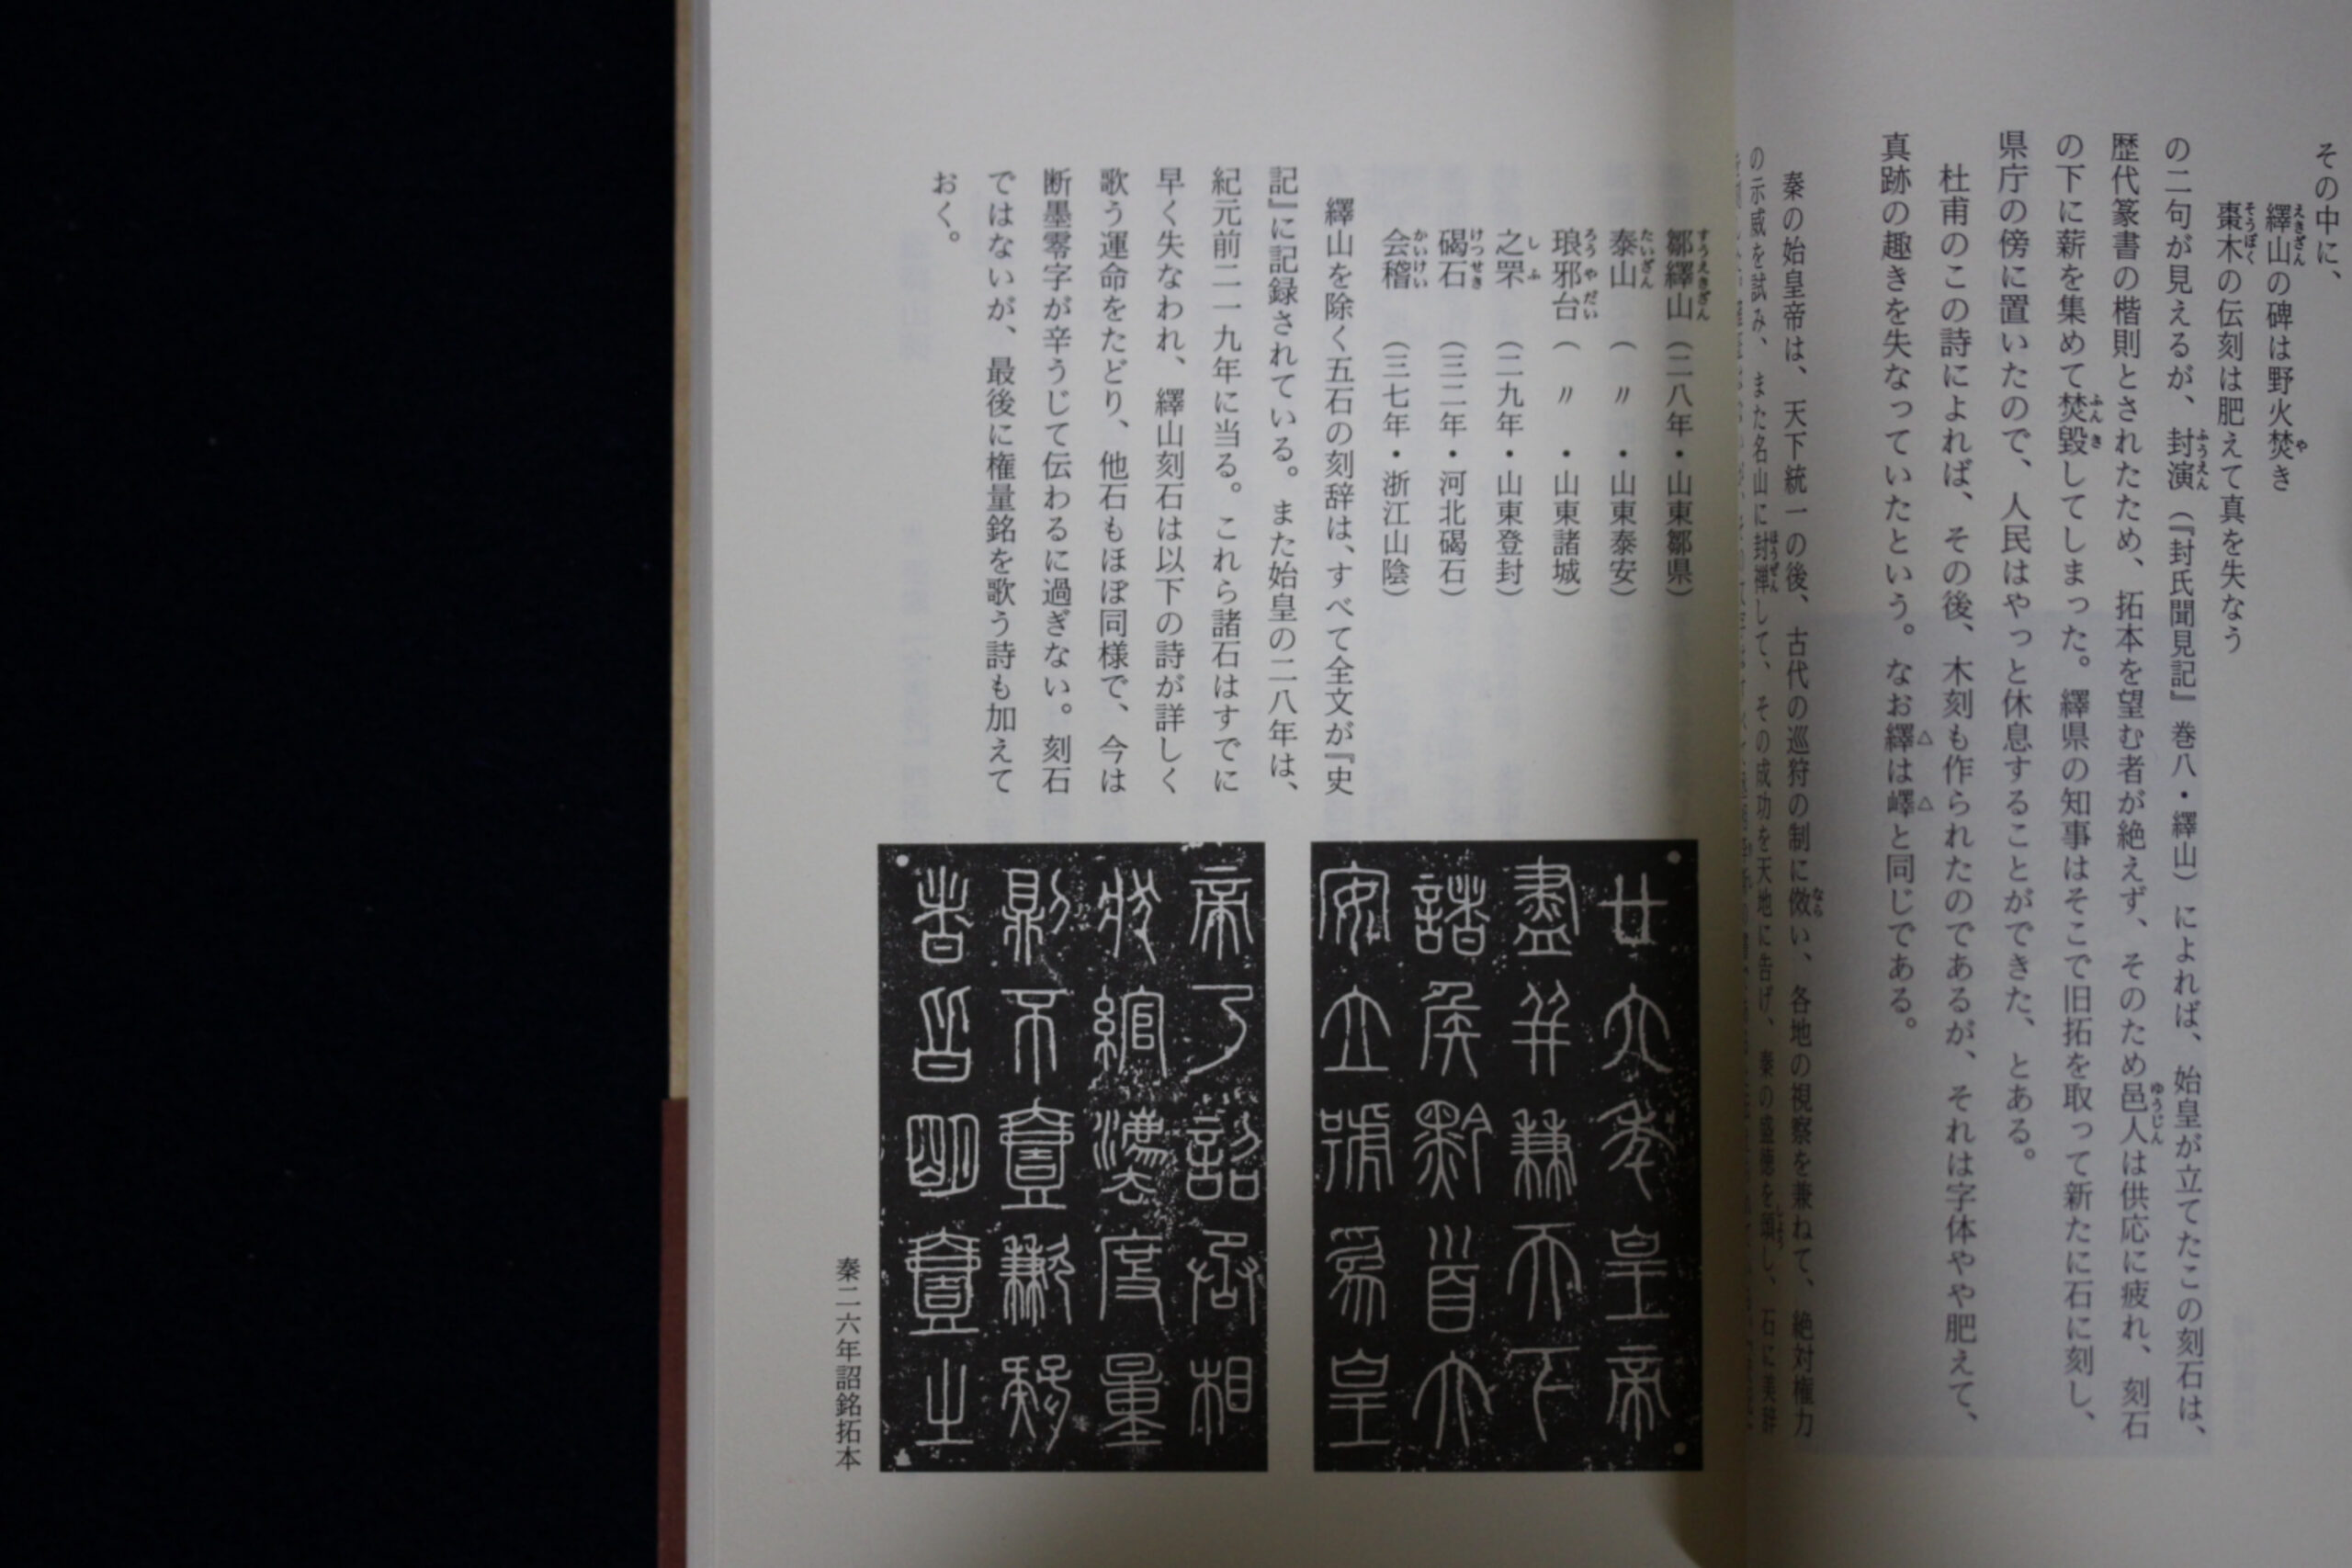 その中に、
繹山の碑は野火焚き
棗木の伝刻は肥えて真を失なう
の二句が見えるが、封演（『封氏聞見記』巻八・繹山）によれば、始皇が立てたこの刻石は、
歴代篆書の楷則とされたため、拓本を望む者が絶えず、そのため邑人は供応に疲れ、刻石
の下に薪を集めて焚毀してしまった。繹県の知事はそこで旧拓を取って新たに石に刻し、
県庁の傍に置いたので、人民はやっと休息することができた、とある。
杜甫のこの詩によれば、その後、木刻も作られたのであるが、それは字体やや肥えて、
真跡の趣きを失なっていたという。なお繹は嶧と同じである。
秦の始皇帝は、天下統一の後、古代の巡狩の制に倣い、各地の視察を兼ねて、絶対権力
の示威を試み、また名山に封禅して、その成功を天地に告げ、秦の盛徳を頌し、石に美辞
鄒繹山（二八年・山東鄒県）
泰山（〃・山東泰安）
琅邪台（〃・山東諸城）
之罘（二九年・山東登封）
碣石（三二年・河北碣石）
会稽（三七年・浙江山陰）
繹山を除く五石の刻辞は、すべて全文が『史
記』に記録されている。また始皇の二八年は、
紀元前二一九年に当る。これら諸石はすでに
早く失なわれ、繹山刻石は以下の詩が詳しく
歌う運命をたどり、他石もほぼ同様で、今は
断墨零字が辛うじて伝わるに過ぎない。刻石
ではないが、最後に権量銘を歌う詩も加えて
おく。
廿六年皇帝
盡并兼天下
諸侯黔首大
安立號爲皇
帝乃詔丞相
狀綰灋度量
則不壹歉疑
者皆明壹之
秦二六年詔銘拓本